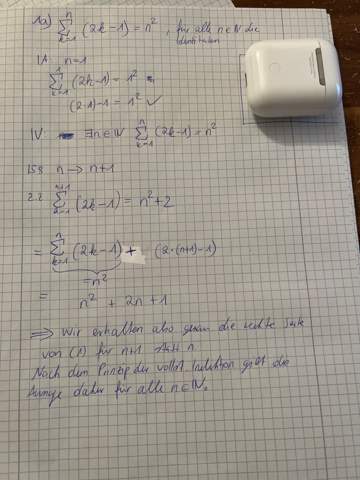 1a) n∑k=1 (2k-1) = n², für alle n∈ℕ die
Identitäten
IA n=1
1∑k=1 (2k-1) = 1²
(2·1)-1 = 1² ✓
IV ∃n∈ℕ n∑k=1 (2k-1) = n²
ISS n → n+1
z.z n+1∑k=1 (2k-1) = n²+2
= n∑k=1 (2k-1) + (2·(n+1)-1)
=n²
= n² + 2n + 1
⇒ Wir erhalten also genau die rechte Seite
von (1) für n+1 statt n
Nach dem Prinzip der vollst Induktion gilt die
daher für alle n∈ℕ.